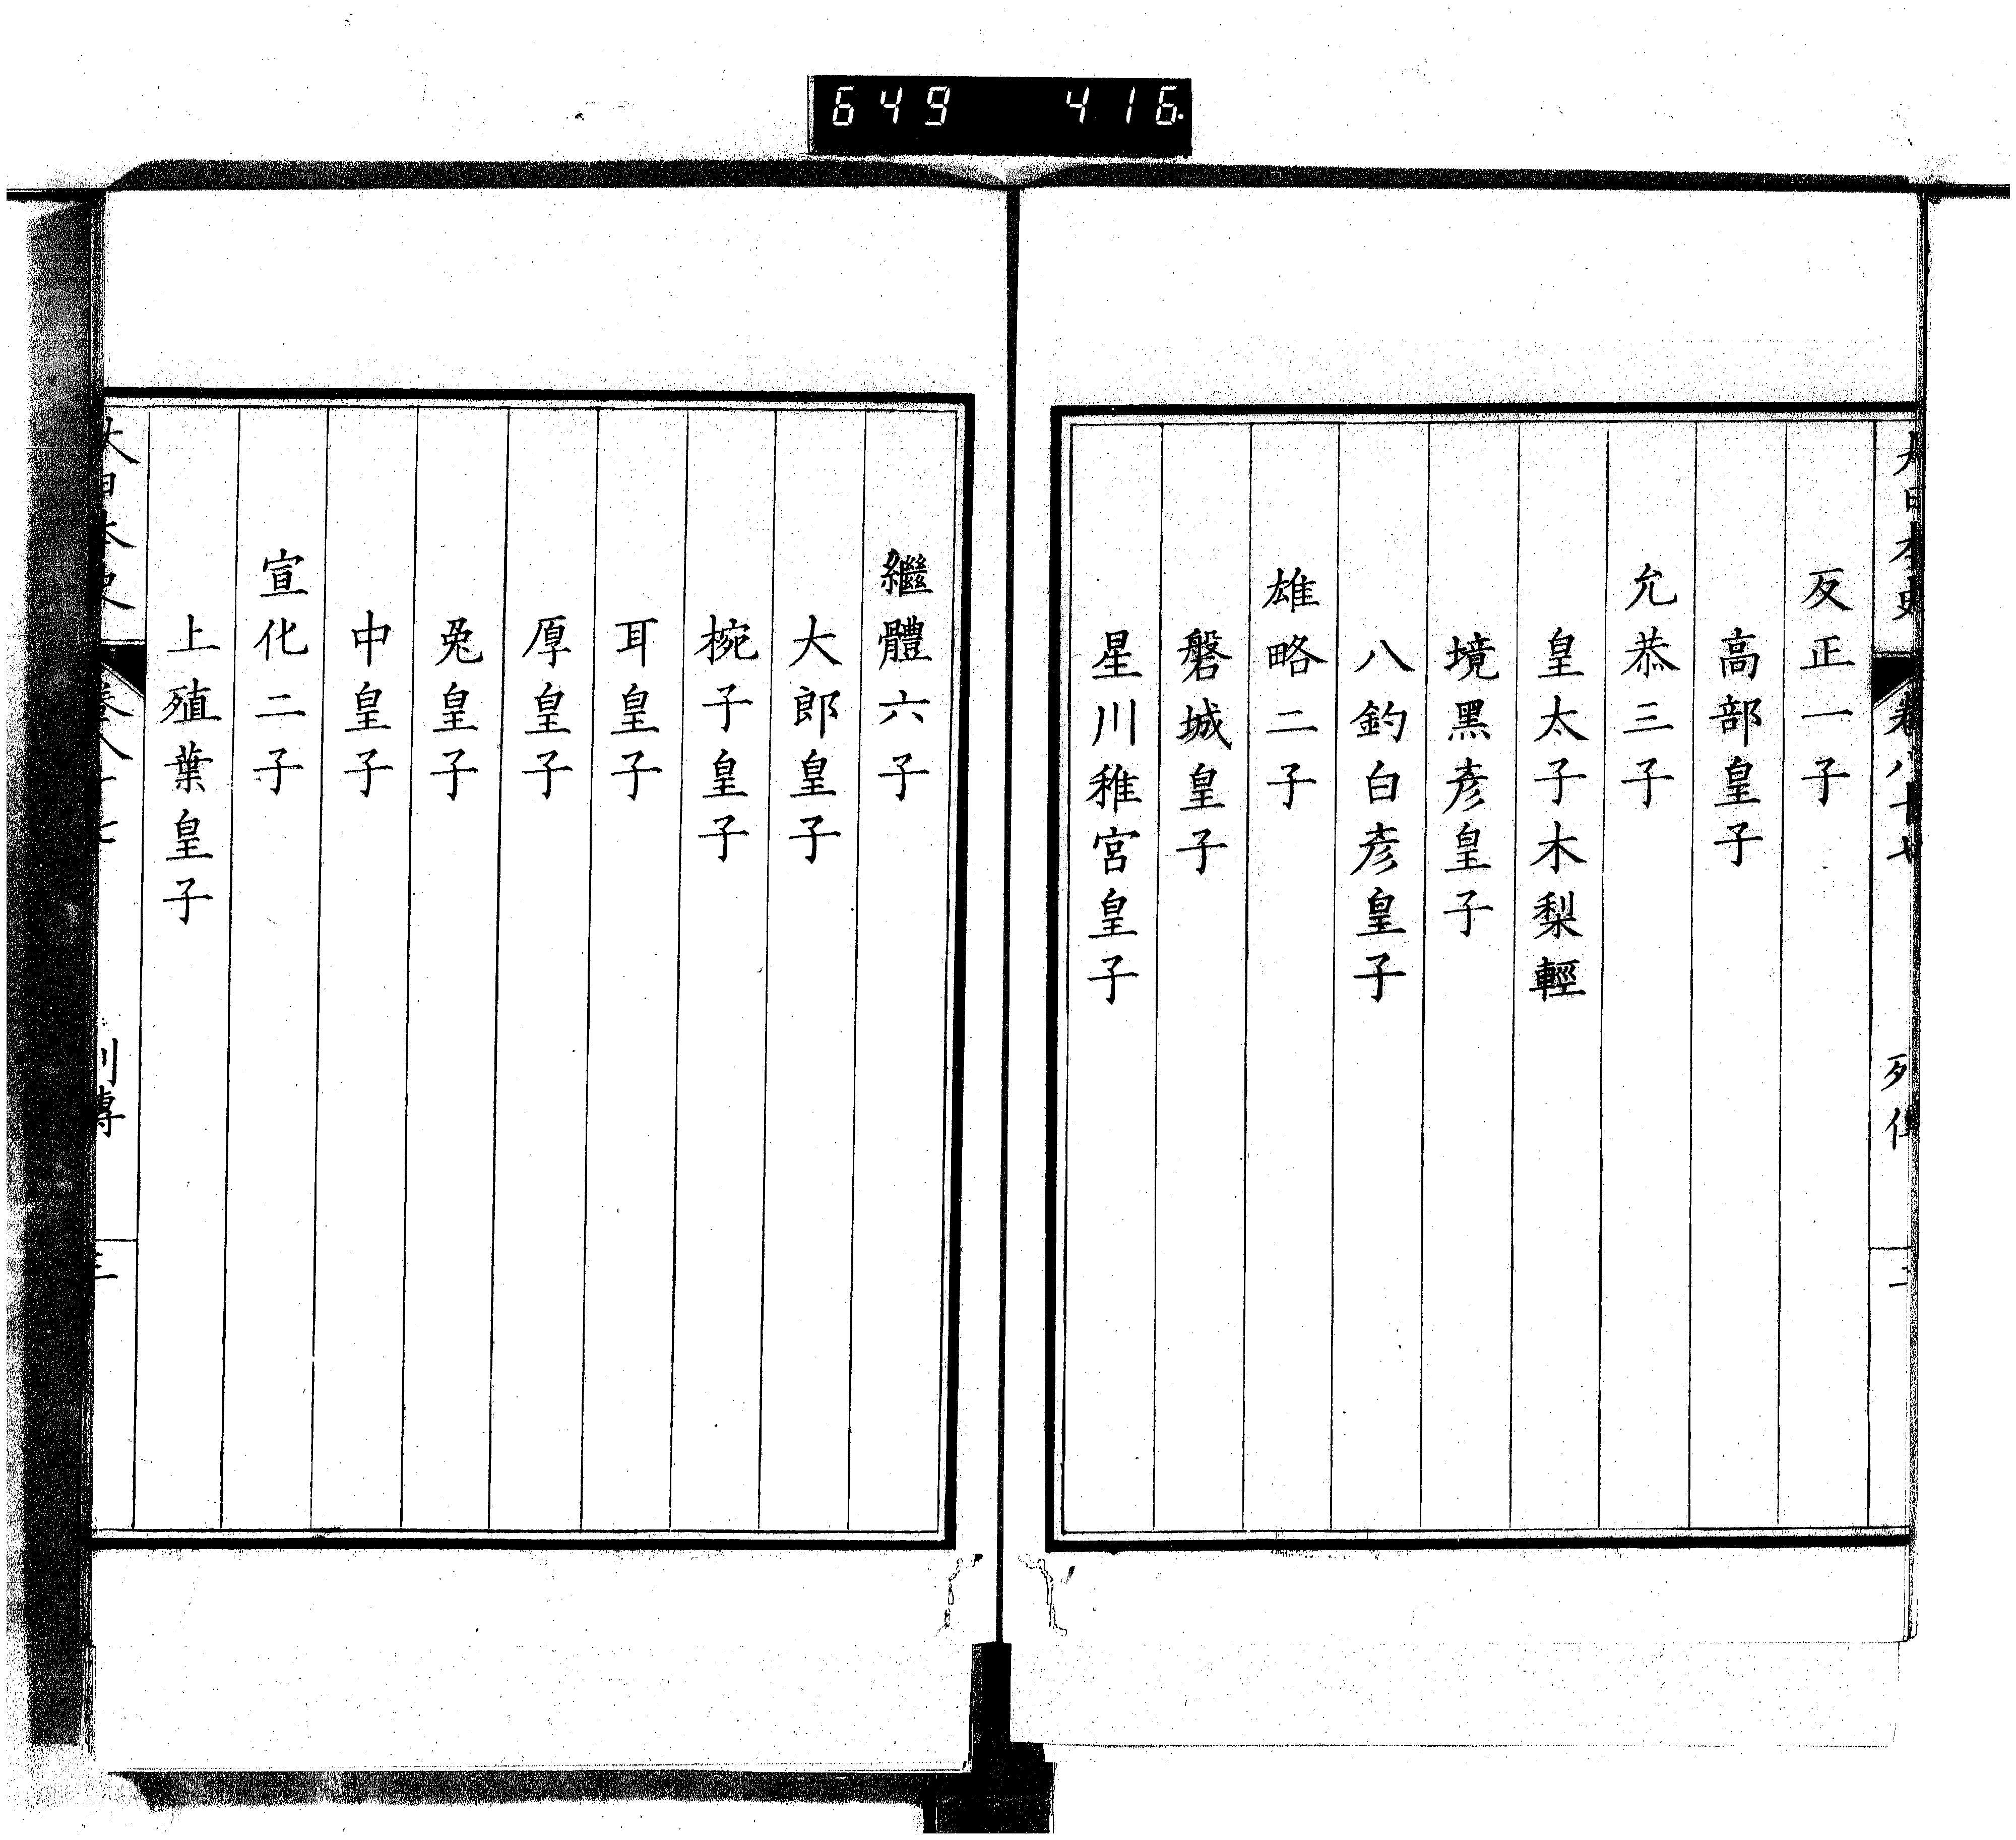 649 416.
大日本史 卷八十七 列傳 二
反正一子
高部皇子
允恭三子
皇太子木梨輕
境黑彥皇子
八釣白彥皇子
雄略二子
磐城皇子
星川稚宮皇子
繼體六子
大郎皇子
椀子皇子
耳皇子
厚皇子
兎皇子
中皇子
宣化二子
上殖葉皇子
大日本史 卷八十七 列傳 三